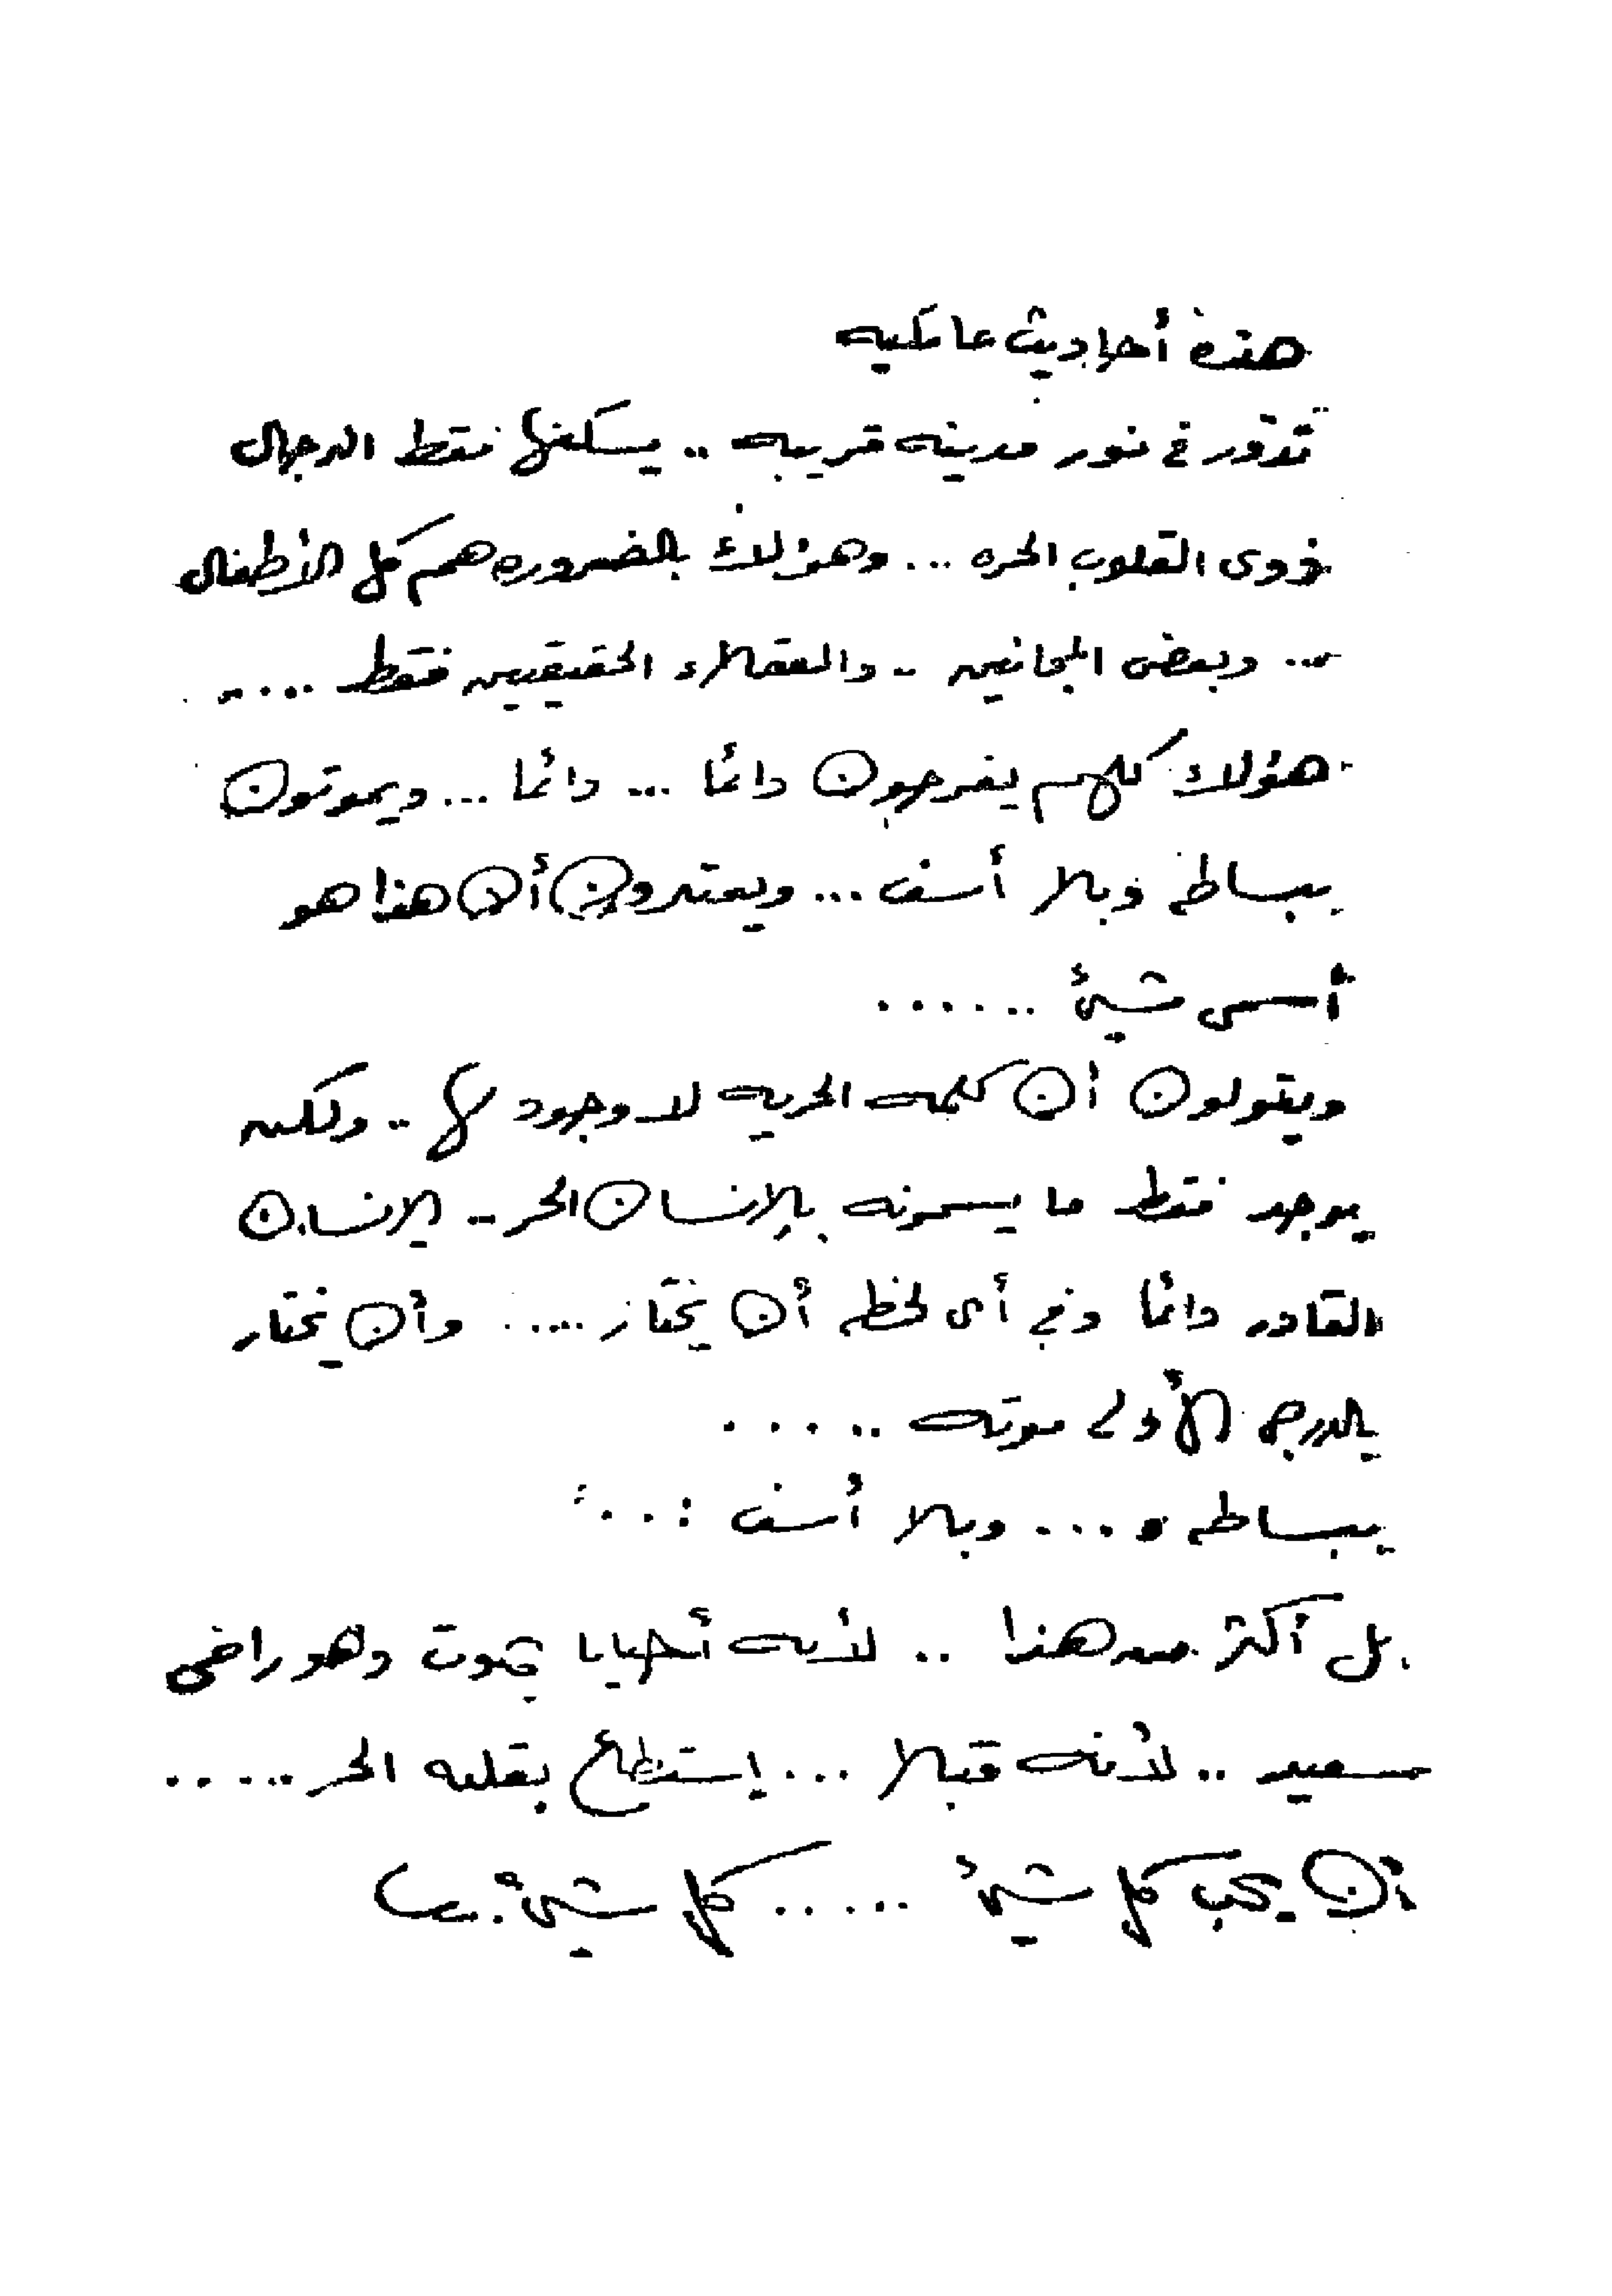 هذه أحاديث عائليه
تدور فى نور مدينه قريبه .. يسكنها فقط الرجال
ذوى القلوب الحره ... وهؤلاء بالضروره هم كل الأطفال
... وبعض المجانين .. والعقلاء الحقيقيين فقط .....
هؤلاء كلهم يفرحون دائما ... دائما ... ويموتون
ببساطه وبلا أسف ... ويعتبرون أن هذا هو
أسمى شيئ ......
ويقولون أن كلمه الحريه لا وجود لها .. ولكن
يوجد فقط ما يسمونه بالإنسان الحر .. الإنسان
القادر دائما وفى أى لحظه أن يختار ..... وأن يختار
بالدرجه الأولى موته .....
ببساطه .... وبلا أسف ....
بل أكثر من هذا .. لأنه أحيانا يموت وهو راضى
سعيد .. لأنه قبلا ... إستطاع بقلبه الحر .....
أن يحب كل شيئ ..... كل شيئ ..